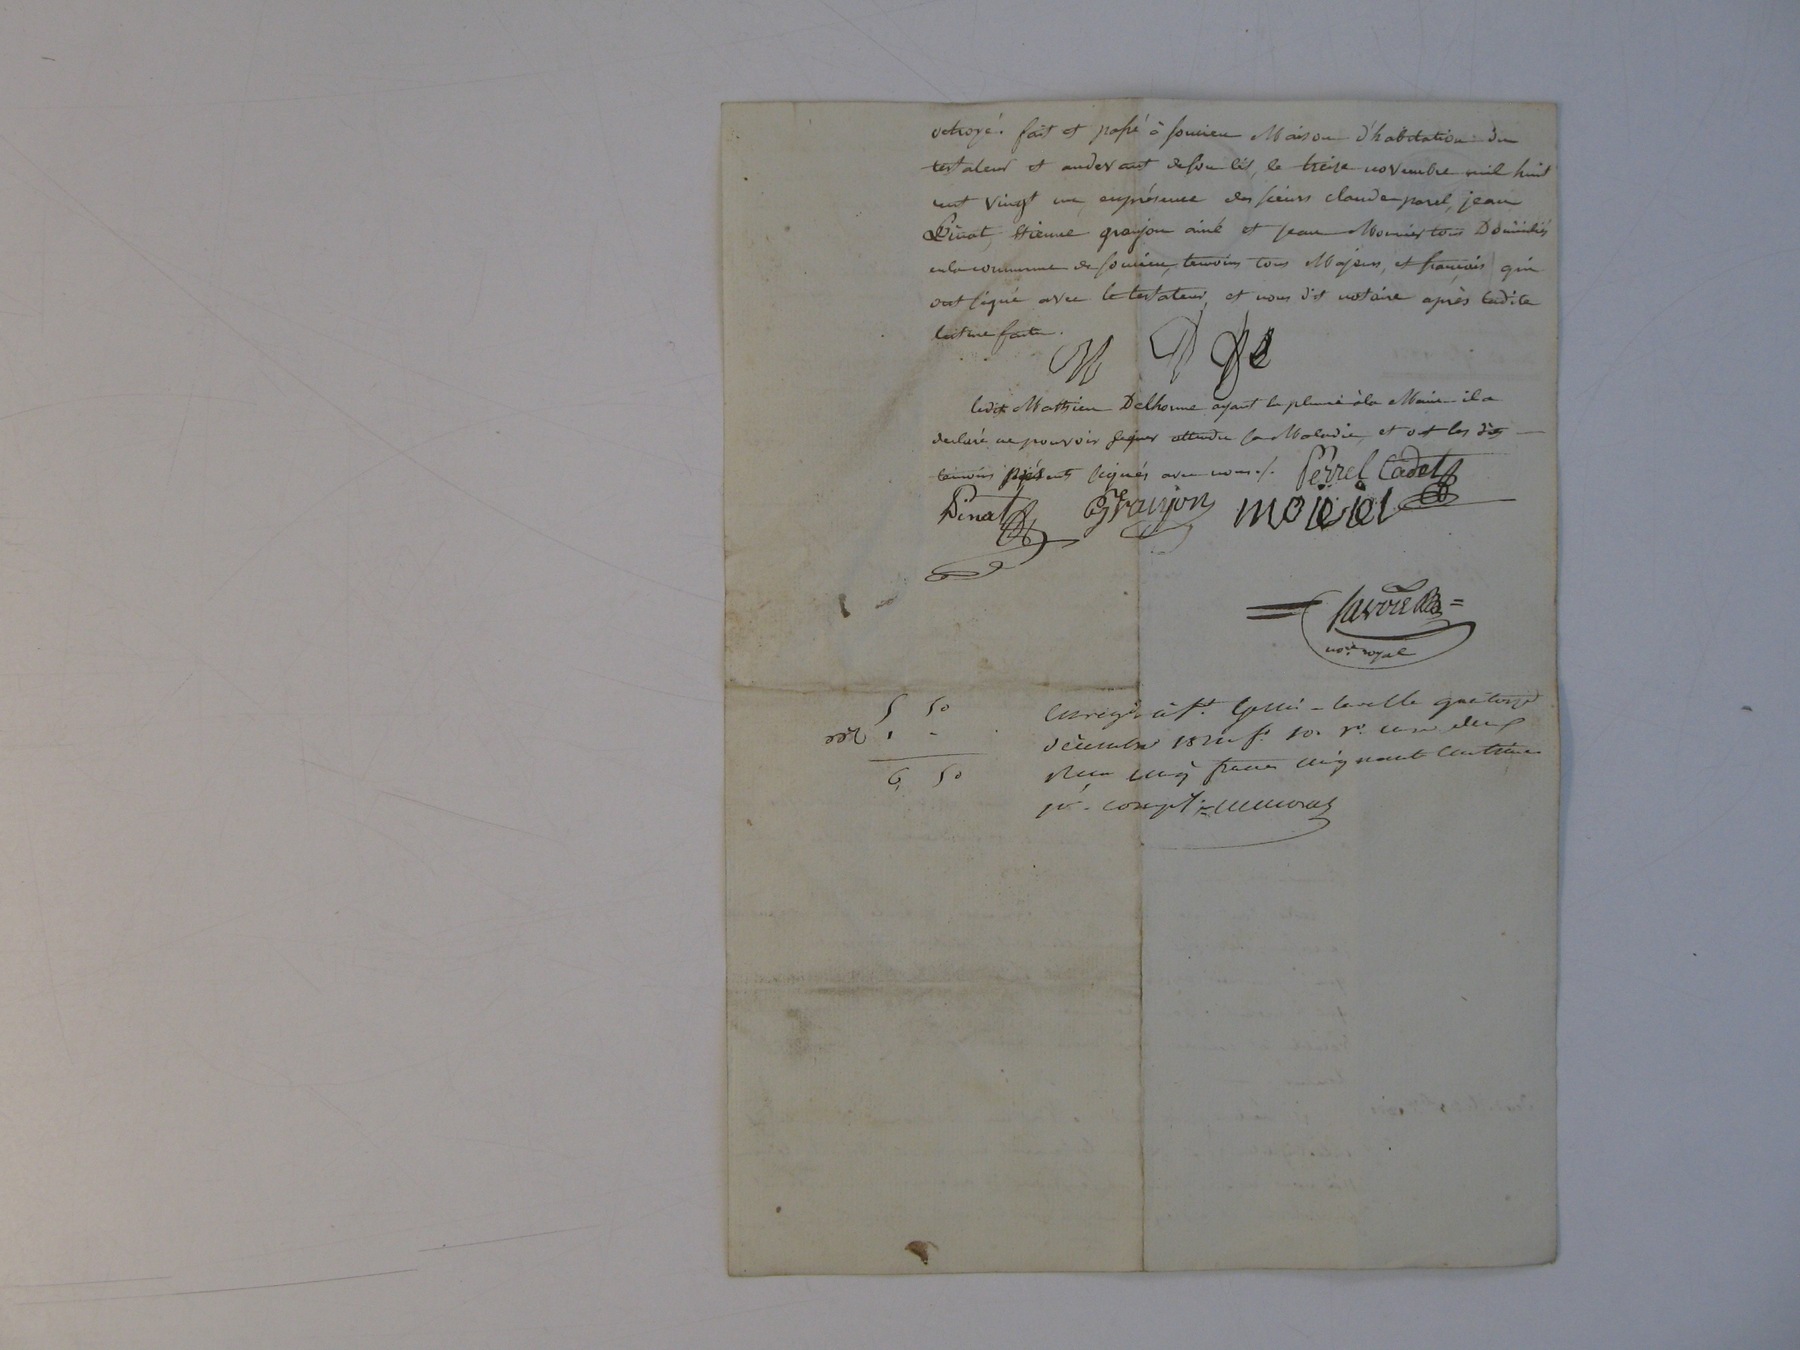 octroyé. fait et passé à soucieu Maison d'habitation du
testateur et audevant de son lit, le treize novembre mil huit
cent vingt un, enprésence des sieurs claude parel, jean
Pinat, Etienne granjon ainé et jean Monier tous Domiciliés
enla commune de soucieu, temoins tous Majeurs, et français qui
ont signé avec le testateur, et nous dit notaire après ladite
lecture faite.
ledit Mathieu Delhorme ayant la plume àla Main il a
declaré ne pouvoir signer attendu sa Maladie, et ont les dits
temoins présents signés avec nous ./.
Perrel Cadet
Pinat Granjon moieiel
not.re royal
5 50
6 50
Enreg.é à S.t quatorze
décembre f.o 10. v.o case deux
Reçu cinq francs cinquante centimes